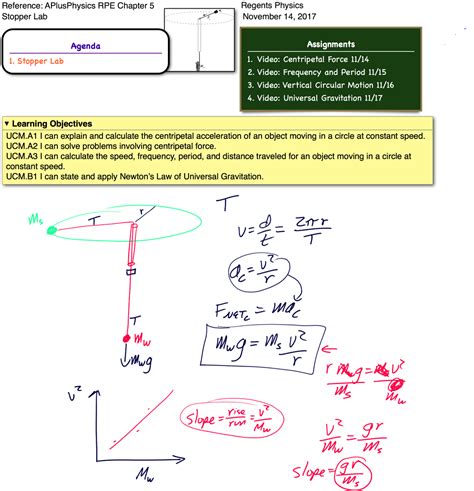 Reference: APlusPhysics RPE Chapter 5
Stopper Lab
Regents Physics
November 14, 2017
Agenda
1. Stopper Lab
Assignments
1. Video: Centripetal Force 11/14
2. Video: Frequency and Period 11/15
3. Video: Vertical Circular Motion 11/16
4. Video: Universal Gravitation 11/17
▾ Learning Objectives
UCM.A1 I can explain and calculate the centripetal acceleration of an object moving in a circle at constant speed.
UCM.A2 I can solve problems involving centripetal force.
UCM.A3 I can calculate the speed, frequency, period, and distance traveled for an object moving in a circle at
constant speed.
UCM.B1 I can state and apply Newton's Law of Universal Gravitation.
mₛ
T
r
T
m_w
m_w g
T
v = d/t = 2πr/T
a_c = v²/r
F_NETc = ma_c
m_w g = mₛ v²/r
r m_w g / mₛ = mₛ v² / m_w
v²/m_w = gr/mₛ
slope = gr/mₛ
v²
m_w
slope = rise/run = v²/m_w